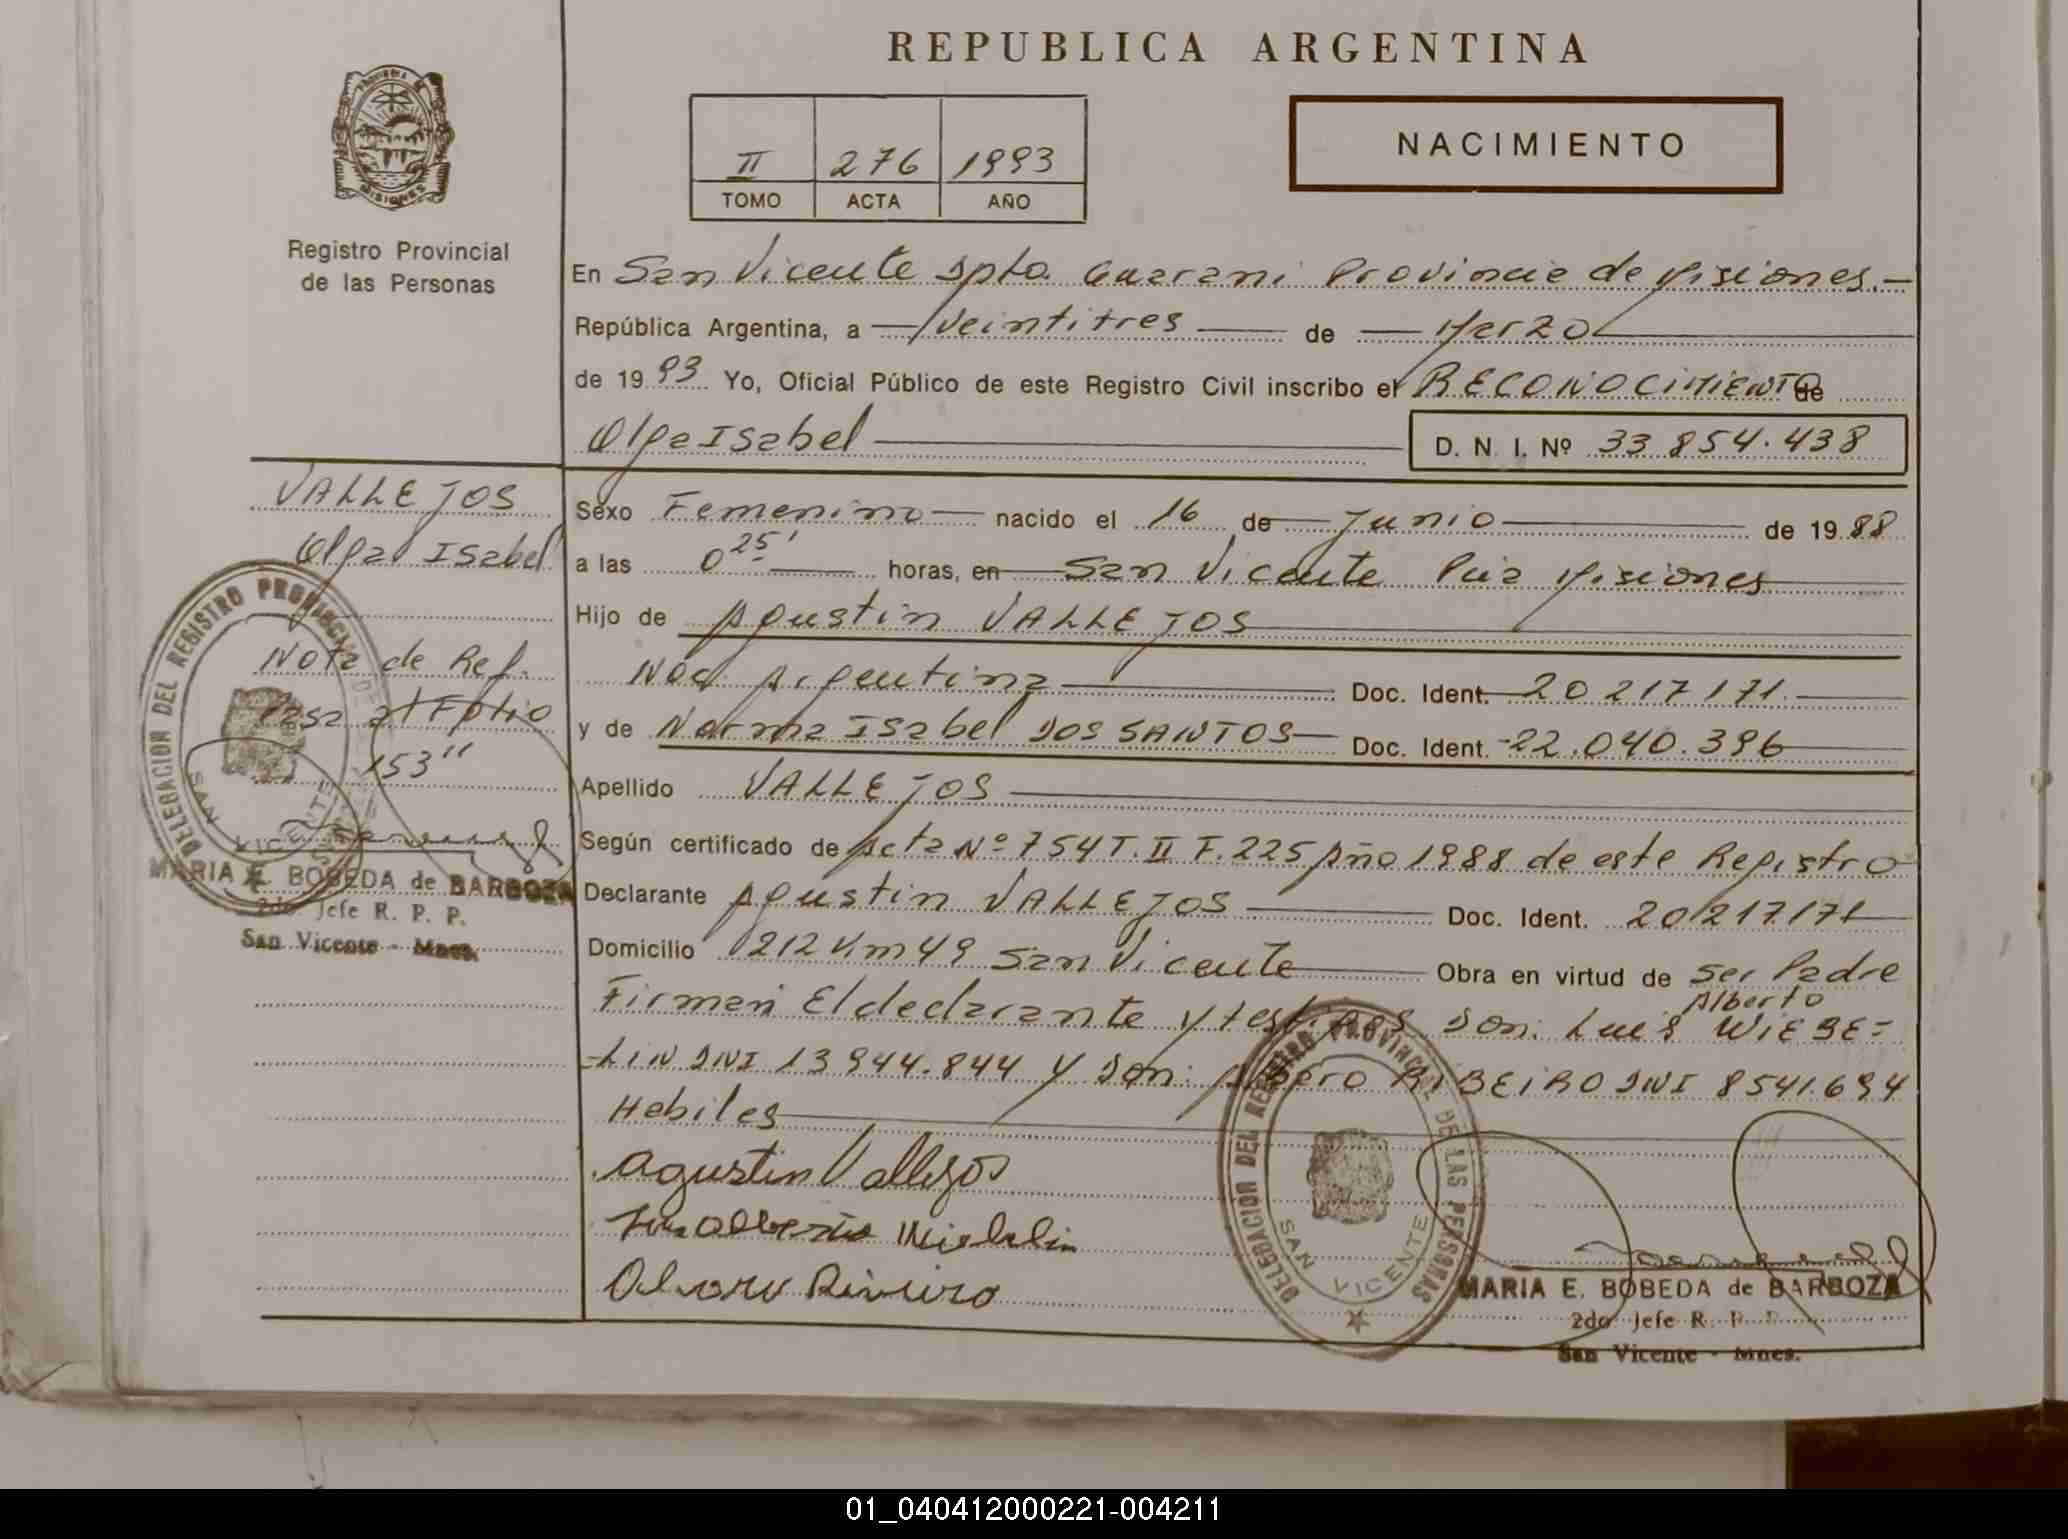 REPUBLICA ARGENTINA
PROVINCIA DE MISIONES
Registro Provincial
de las Personas
II 276 1993
TOMO ACTA AÑO
NACIMIENTO
En San Vicente Dpto. Guarani Provincia de Misiones.-
República Argentina, a veintitres de Marzo
de 1993 Yo, Oficial Público de este Registro Civil inscribo el RECONOCIMIENTO de
Olga Isabel
D. N. I. Nº 33.854.438
VALLEJOS
Olga Isabel
Nota de Ref.
Pasa al Folio
153"
DELEGACION DEL REGISTRO PROVINCIAL DE LAS PERSONAS
SAN VICENTE
MARIA E. BOBEDA de BARBOZA
2do Jefe R. P. P.
San Vicente - Mnes.
Sexo Femenino nacido el 16 de Junio de 1988
a las 0 25' horas, en San Vicente Pcia Misiones
Hijo de Agustin VALLEJOS
Nac. Argentina Doc. Ident. 20.217.171
y de Norma Isabel DOS SANTOS Doc. Ident. 22.040.396
Apellido VALLEJOS
Según certificado de Acta Nº 754 T. II F. 225 Año 1988 de este Registro
Declarante Agustin VALLEJOS Doc. Ident. 20217171
Domicilio 212 Km 49 San Vicente Obra en virtud de ser Padre
Firman El declarante y testigos Don: Luis Alberto WIEBE=
-LIN DNI 13944.844 y Don: RIBEIRO DNI 8541.694
Habiles
Agustin Vallejos
DELEGACION DEL REGISTRO PROVINCIAL DE LAS PERSONAS
SAN VICENTE
MARIA E. BOBEDA de BARBOZA
2do Jefe R. P. P.
San Vicente - Mnes.
01_040412000221-004211